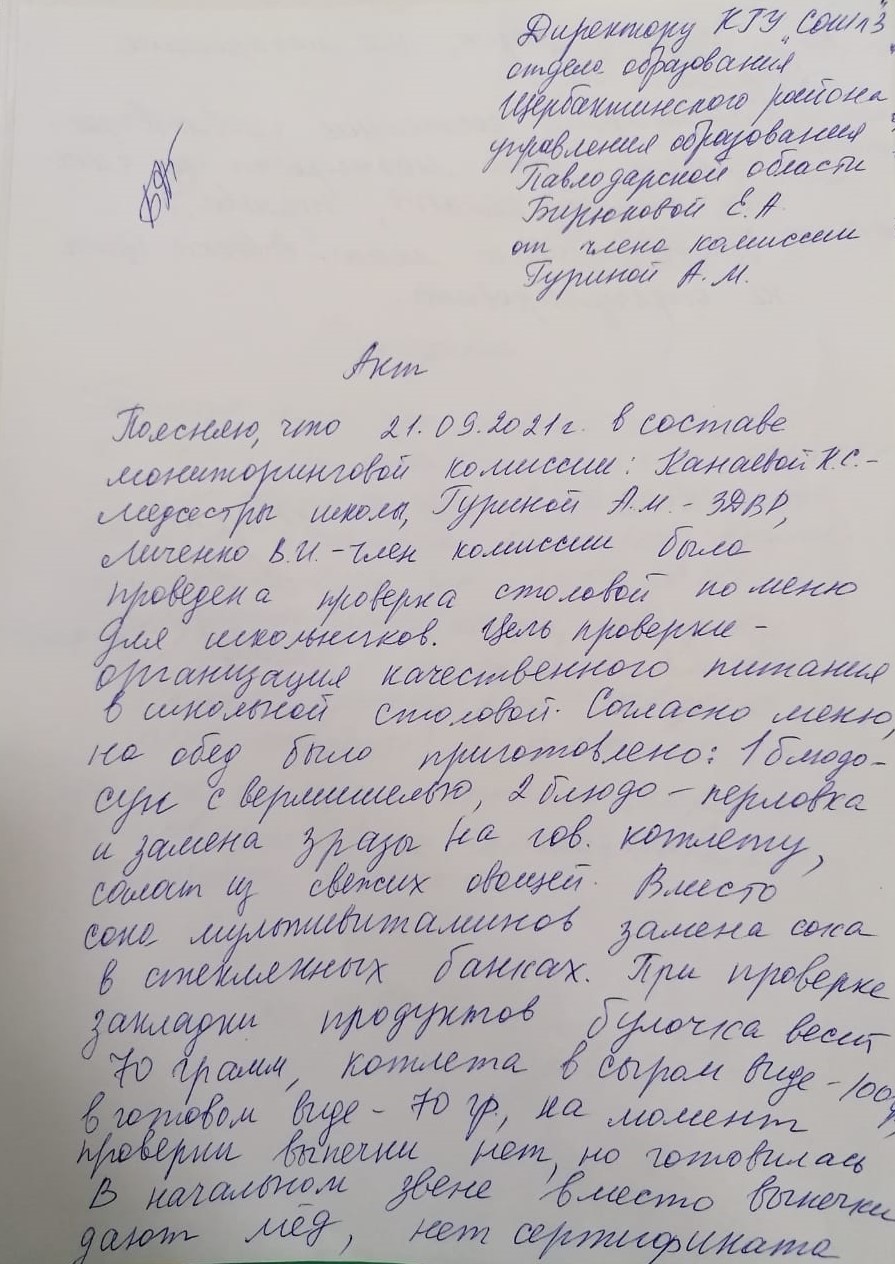 Директору КГУ „СОШ№3"
отдела образования
Щербактинского района
управления образования
Павлодарской области
Бирюковой Е.А.
от члена комиссии
Гуриной А.М.
Акт
Поясняю, что 21.09.2021г. в составе
мониторинговой комиссии: Канаевой К.С.-
медсестры школы, Гуриной А.М.- ЗДВР,
Личенко В.И.-член комиссии была
проведена проверка столовой по меню
для школьников. Цель проверки-
организация качественного питания
в школьной столовой. Согласно меню,
на обед было приготовлено: 1 блюдо-
суп с вермишелью, 2 блюдо - перловка
и замена зразы на гов. котлету,
салат из свежих овощей. Вместо
сока мультивитаминов замена сока
в стеклянных банках. При проверке
закладки продуктов булочка весит
70 грамм, котлета в сыром виде - 100г
в готовом виде - 70 гр., на момент
проверки выпечки нет, но готовилась
В начальном звене вместо выпечки
дают мёд, нет сертификата